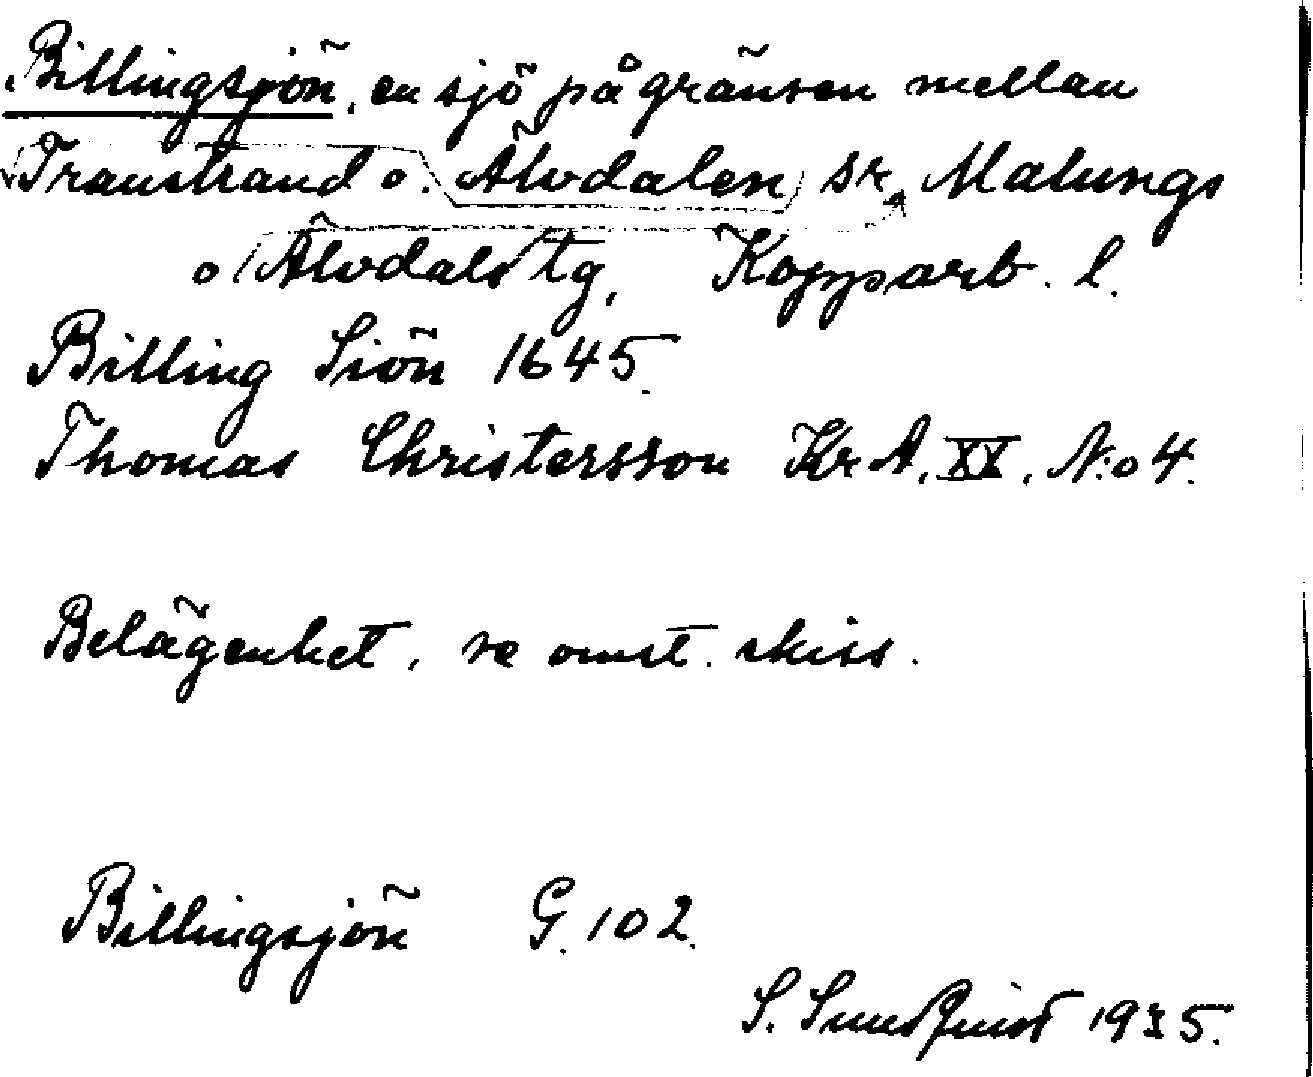 Billingsjön, en sjö på gränsen mellan
Transtrand o. Älvdalen sr, Malungs
o Älvdals tg, Kopparb. l.
Billing Siön 1645.
Thomas Christersson Kr A. XX. N:o 4.
Belägenhet, se omst. skiss.
Billingsjön G. 102.
S. Sundquist 1935.